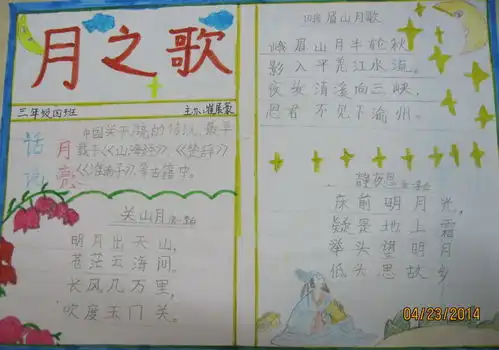 月之歌
三年级四班
主办:崔展豪
话说
月亮
中国关于月亮的传说,最早
载于《山海经》、《楚辞》
《淮南子》等古籍中。
关山月 唐·李白
明月出天山,
苍茫云海间。
长风几万里,
吹度玉门关。
峨眉山月歌
峨眉山月半轮秋
影入平羌江水流。
夜发清溪向三峡,
思君不见下渝州。
静夜思 唐·李白
床前明月光,
疑是地上霜
举头望明月
低头思故乡
04/23/2014